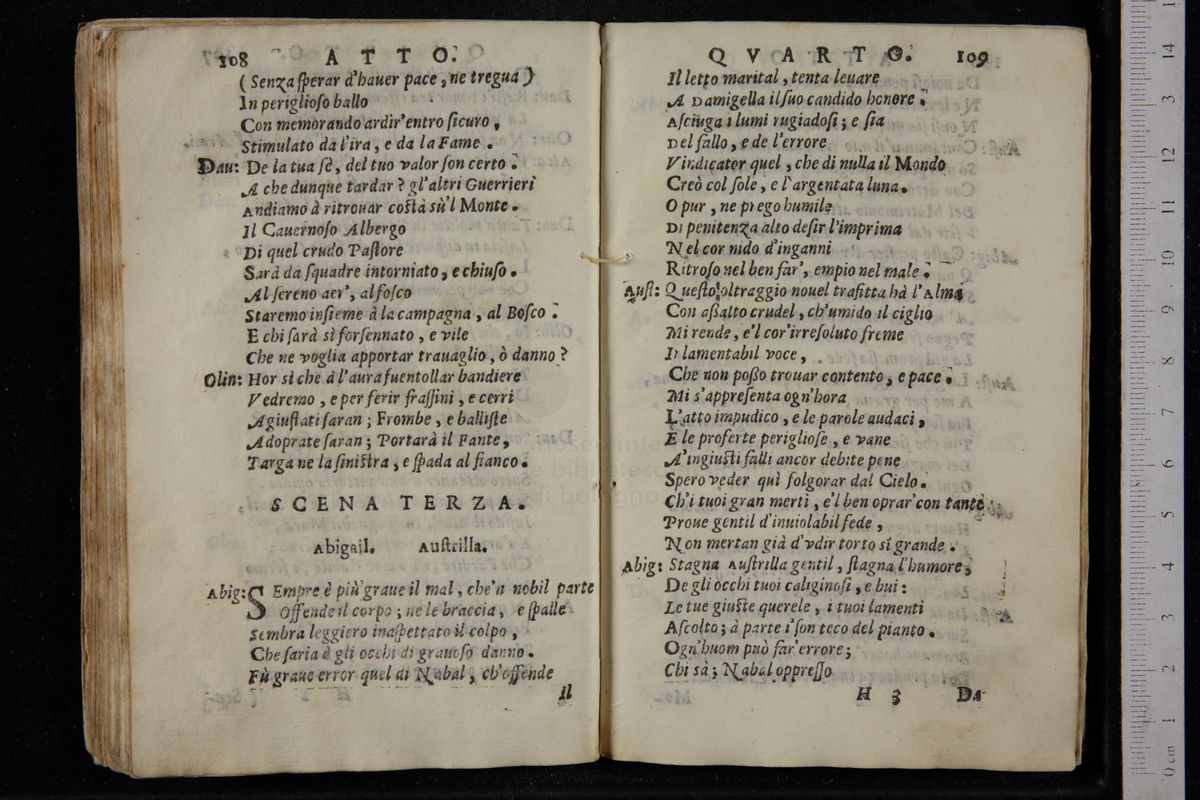 108 ATTO.
( Senza sperar d'hauer pace, ne tregua )
In periglioso ballo
Con memorando ardir' entro sicuro,
Stimulato da l'ira, e da la Fame.
Dau: De la tua fè, del tuo valor son certo.
A che dunque tardar? gl'altri Guerrieri
Andiamo à ritrouar costà sù'l Monte.
Il Cauernoso Albergo
Di quel crudo Pastore
Sarà da squadre intorniato, e chiuso.
Al sereno aer', al fosco
Staremo insieme à la campagna, al Bosco.
E chi sarà sì forsennato, e vile
Che ne voglia apportar trauaglio, ò danno?
Olin: Hor sì che à l'aura suentollar bandiere
Vedremo, e per ferir frassini, e cerri
Agiustati saran; Frombe, e balliste
Adoprate saran; Portarà il Fante,
Targa ne la sinistra, e spada al fianco.
SCENA TERZA.
Abigail. Austrilla.
Abig: SEmpre è più graue il mal, che'a nobil parte
Offende il corpo; ne le braccia, e spalle
Sembra leggiero inaspettato il colpo,
Che saria à gli occhi di grauoso danno.
Fù graue error quel di Nabal, ch'offende
Il
QVARTO. 109
Il letto marital, tenta leuare
A Damigella il suo candido honore.
Asciuga i lumi rugiadosi; e sia
Del fallo, e de l'errore
Vindicator quel, che di nulla il Mondo
Creò col sole, e l'argentata luna.
O pur, ne prego humile
Di penitenza alto desir l'imprima
Nel cor nido d'inganni
Ritroso nel ben far', empio nel male.
Aust: Questo oltraggio nouel trafitta hà l'Alma
Con assalto crudel, ch'umido il ciglio
Mi rende, e'l cor' irresoluto freme
In lamentabil voce,
Che non posso trouar contento, e pace.
Mi s'appresenta ogn'hora
L'atto impudico, e le parole audaci,
E le proferte perigliose, e vane
A' ingiusti falli ancor debite pene
Spero veder quì folgorar dal Cielo.
Ch'i tuoi gran merti, e'l ben oprar' con tante
Proue gentil d'inuiolabil fede,
Non mertan già d'vdir torto sì grande.
Abig: Stagna Austrilla gentil, stagna l'humore,
De gli occhi tuoi caliginosi, e bui:
Le tue giuste querele, i tuoi lamenti
Ascolto; à parte i' son teco del pianto.
Ogn'huom può far' errore;
Chi sà; Nabal oppresso
H 3 Da